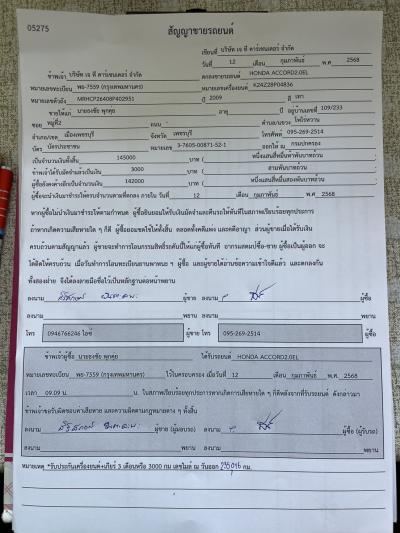 05275
สัญญาขายรถยนต์
เขียนที่ บริษัท เจ ที คาร์เซนเตอร์ จำกัด
วันที่ 12 เดือน กุมภาพันธ์ พ.ศ 2568
ข้าพเจ้า บริษัท เจ ที คาร์เซนเตอร์ จำกัด ตกลงขายรถยนต์ HONDA ACCORD2.0EL
หมายเลขทะเบียน พย-7559 (กรุงเทพมหานคร) หมายเลขเครื่องยนต์ K24Z28P04836
หมายเลขตัวถัง MRHCP26408P402951 ปี 2009 สี เทา
ขายให้แก่ นายธงชัย พุกคุ่ย อายุ ปี อยู่บ้านเลขที่ 109/233
บ้าน หมู่ที่2 ถนน - ตำบล/แขวง ไพ่รหวาน
อำเภอ/เขต เมืองเพชรบุรี จังหวัด เพชรบุรี โทรศัพท์ 095-269-2514
บัตร บัตรประชาชน หมายเลข 3-7605-00871-52-1 ออกให้ ณ กรมปกครอง
เป็นจำนวนเงินทั้งสิ้น 145000 บาท ( หนึ่งแสนสี่หมื่นห้าพันบาทถ้วน )
ข้าพเจ้าได้รับมัดจำแล้วเป็นเงิน 3000 บาท ( สามพันบาทถ้วน )
ผู้ซื้อยังคงค้างอีกเป็นจำนวนเงิน 142000 บาท ( หนึ่งแสนสี่หมื่นสองพันบาทถ้วน )
ผู้ซื้อจะนำเงินมาชำระให้ครบจำนวนตามที่ตกลง ภายใน วันที่ 12 เดือน กุมภาพันธ์ พ.ศ 2568
หากผู้ซื้อไม่นำเงินมาชำระให้ตามกำหนด ผู้ซื้อยินยอมให้ริบเงินมัดจำและคืนรถให้ทันทีในสภาพเรียบร้อยทุกประการ
ถ้าหากเกิดความเสียหายใด ๆ ก็ดี ผู้ซื้อยอมชดใช้ให้ทั้งสิ้น ตลอดทั้งคดีแพ่ง และคดีอาญา ส่วนผู้ขายเมื่อได้รับเงิน
ครบถ้วนตามสัญญาแล้ว ผู้ขายจะทำการโอนกรรมสิทธิ์รถคันนี้ให้แก่ผู้ซื้อทันที
ทั้งสองฝ่าย จึงได้ลงลายมือชื่อไว้เป็นหลักฐานต่อหน้าพยาน
ลงนาม ผู้ขาย ลงนาม ผู้ซื้อ
ลงนาม พยาน ลงนาม พยาน
โทร 0946766246 ไอซ์ ผู้ขาย โทร 095-269-2514 ผู้ซื้อ
ข้าพเจ้าผู้ซื้อ นายธงชัย พุกคุ่ย ได้รับรถยนต์ HONDA ACCORD2.0EL
หมายเลขทะเบียน พย-7559 (กรุงเทพมหานคร) ไว้ในครอบครอง เมื่อวันที่ 12 เดือน กุมภาพันธ์ พ.ศ. 2568
เวลา 09.09 น. น ในสภาพเรียบร้อยทุกประการหากเกิดการเสียหายใด ๆ ก็ดีหลังจากที่รับรถยนต์ ดังกล่าวมา
ข้าพเจ้าขอรับผิดชอบค่าเสียหาย และความผิดตามกฎหมายต่าง ๆ ทั้งสิ้น
ลงนาม ผู้ขาย (ผู้มอบรถ) ลงนาม ผู้ซื้อ (ผู้รับรถ)
ลงนาม พยาน ลงนาม พยาน
หมายเหตุ *รับประกันเครื่องยนต์+เกียร์ 3 เดือนหรือ 3000 กม เลขไมล์ ณ วันออก กม.